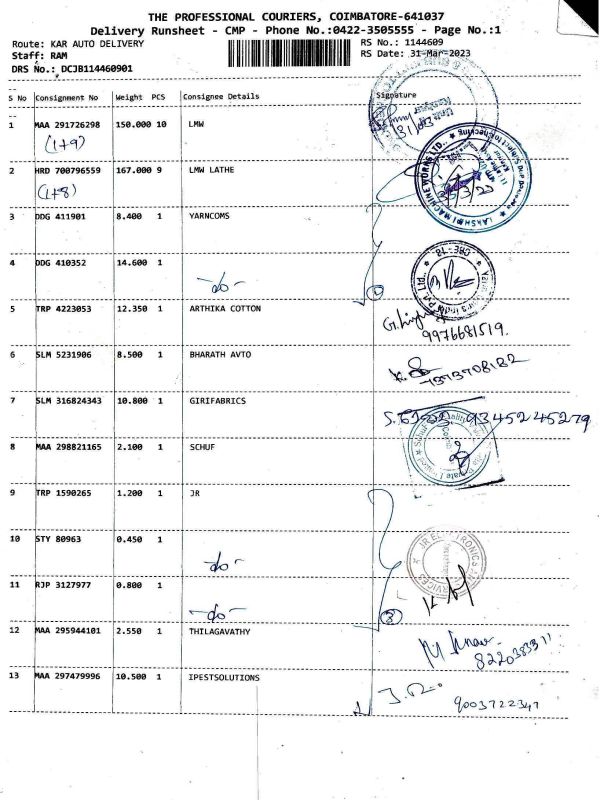 THE PROFESSIONAL COURIERS, COIMBATORE-641037
Delivery Runsheet - CMP - Phone No.:0422-3505555 - Page No.:1
Route: KAR AUTO DELIVERY RS No.: 1144609
Staff: RAM RS Date: 31-Mar-2023
DRS No.: DCJB114460901
S No Consignment No Weight PCS Consignee Details Signature
1 MAA 291726298 150.000 10 LMW
(1+9)
2 HRD 700796559 167.000 9 LMW LATHE
(1+8)
LAKSHMI MACHINE WORKS LTD.
3 DDG 411901 8.400 1 YARNCOMS
4 DDG 410352 14.600 1
-do-
CBE-18
5 TRP 4223053 12.350 1 ARTHIKA COTTON
9976681519.
6 SLM 5231906 8.500 1 BHARATH AVTO
7373708182
7 SLM 316824343 10.800 1 GIRIFABRICS
9345245279
8 MAA 298821165 2.100 1 SCHUF
9 TRP 1590265 1.200 1 JR
10 STY 80963 0.450 1
-do-
JR ELECTRONICS
SERVICES
11 RJP 3127977 0.800 1
-do-
3
12 MAA 295944101 2.550 1 THILAGAVATHY
13 MAA 297479996 10.500 1 IPESTSOLUTIONS
9003722347